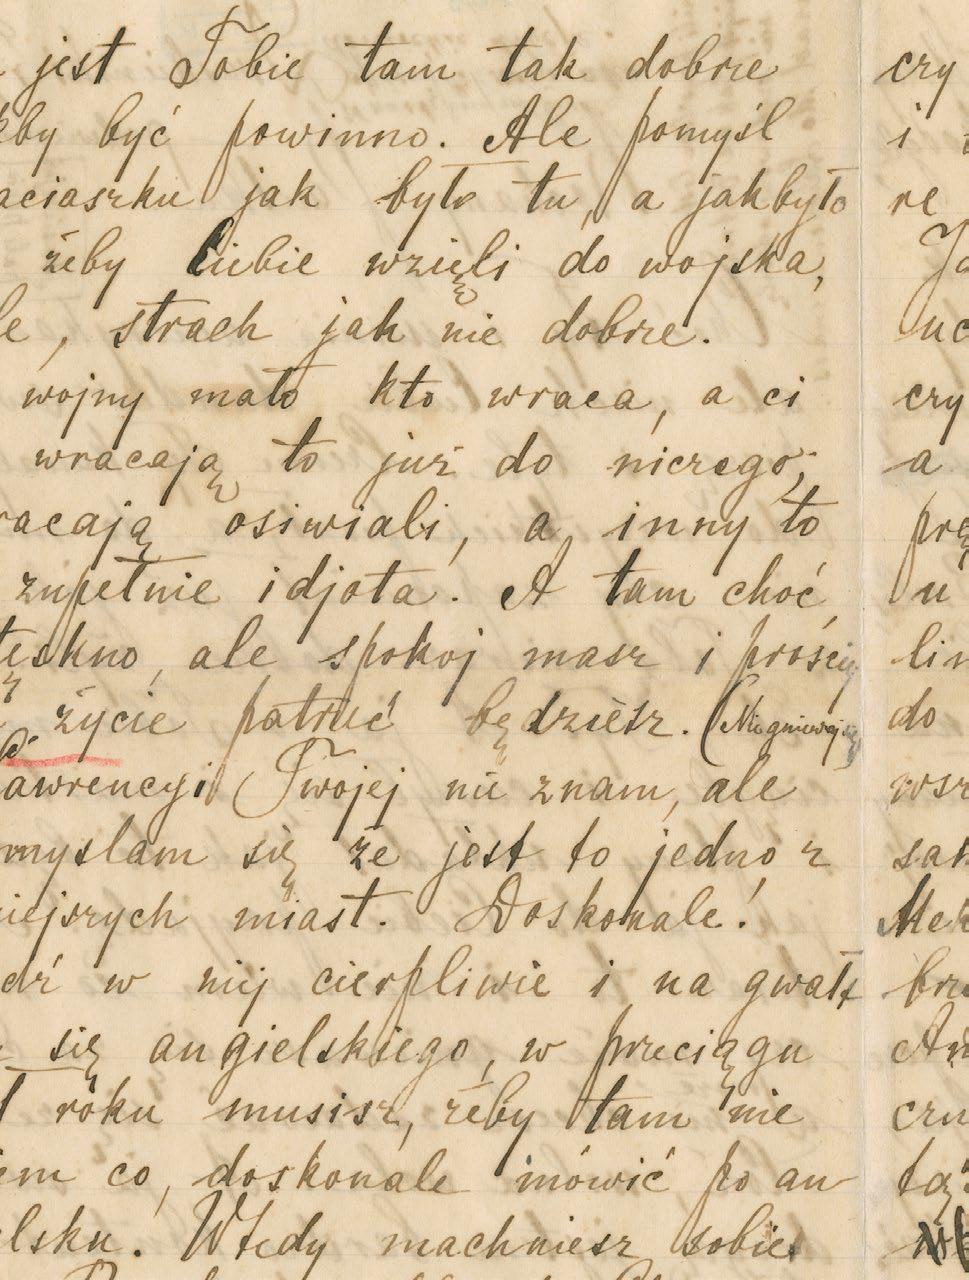 jest Tobie tam tak dobrze
kby być powinno. Ale pomyśl
aciaszku jak było tu, a jakbyło
żeby Ciebie wzięli do wojska,
le, strach jak nie dobrze.
wojny mało kto wraca, a ci
wracają to już do niczego;
racają osiwiali, a inny to
zupełnie idjota. A tam choć
tęskno, ale spokój masz i prościej
życie patrzeć będziesz. (Nie gniewaj się)
awrencyi Twojej nie znam, ale
omyślam się że jest to jedno z
niejszych miast. Doskonale!
dź w niej cierpliwie i na gwałt
się angielskiego, w przeciągu
roku musisz, żeby tam nie
iem co, doskonale mówić po an
elsku. Wtedy machniesz sobie
czy
i
re
Ja
uc
czy
a
prę
u
lin
do
wsz
sam
Mek
brz
czu
tą